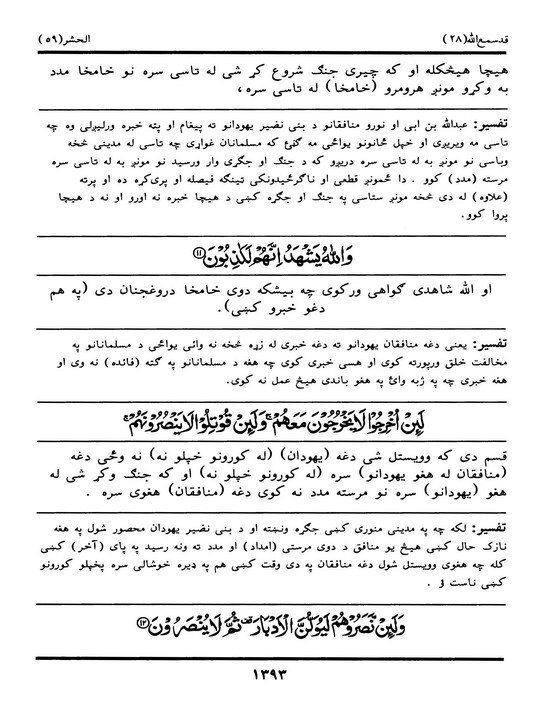 قدسمع الله (۲۸)
الحشر (۵۹)
هيچا هيڅکله او که چيري جنګ شروع کړ شي له تاسي سره نو خامخا مدد
به وکړو مونږ هرومرو (خامخا) له تاسي سره ،
تفسير: عبدالله بن ابی او نورو منافقانو د بنی نضير يهودانو ته پيغام او پټه خبره ورليږلی وه چه
تاسی مه ويريږی او خپل ځانونو يواځی مه ګڼئ که مسلمانان غواړی چه تاسی له مدينی څخه
وباسی نو مونږ به له تاسی سره دريږو که د جنګ او جګړی وار ورسيد نو مونږ به له تاسی سره
مرسته (مدد) کوو . دا ځمونږ قطعی او ناګرځيدونکی تينګه فيصله او پرېکړه ده او پرته
(علاوه) له دی څخه مونږ ستاسی په جنګ او جګړه کښی د هيچا خبره نه اورو او نه د هيچا
پروا کوو.
وَاللهُ يَشْهَدُ اِنَّهُمْ لَكٰذِبُوْنَ ۝۱۱
او الله شاهدی ګواهی ورکوی چه بيشکه دوی خامخا دروغجنان دی (په هم
دغو خبرو کښی).
تفسير: يعنی دغه منافقان يهودانو ته دغه خبری له زړه څخه نه وائی يواځی د مسلمانانو په
مخالفت خلق ورپورته کوی او هسی خبری کوی چه هغه د مسلمانانو په ګټه (فائده) نه وی او
هغه خبری چه په ژبه وائ په هغو باندی هيڅ عمل نه کوی.
لَئِنْ اُخْرِجُوْا لَا يَخْرُجُوْنَ مَعَهُمْ ۚ وَلَئِنْ قُوْتِلُوْا لَا يَنْصُرُوْنَهُمْ ۚ
قسم دی که وويستل شی دغه (يهودان) (له کورونو خپلو نه) نه وځی دغه
(منافقان له هغو يهودانو) سره (له کورونو خپلو نه) او که جنګ وکړ شی له
هغو (يهودانو) سره نو مرسته مدد نه کوی دغه (منافقان) هغوی سره .
تفسير: لکه چه په مدينی منوری کښی جګړه ونښته او د بنی نضير يهودان محصور شول په هغه
نازک حال کښی هيڅ يو منافق د دوی مرستی (امداد) او مدد ته ونه رسيد په پای (آخر) کښی
کله چه هغوی وويستل شول دغه منافقان په دی وقت کښی هم په ډيره خوشالی سره پخپلو کورونو
کښی ناست ؤ .
وَلَئِنْ نَّصَرُوْهُمْ لَيُوَلُّنَّ الْاَدْبَارَ ۣ ثُمَّ لَا يُنْصَرُوْنَ ۝۱۲
۱۳۹۳